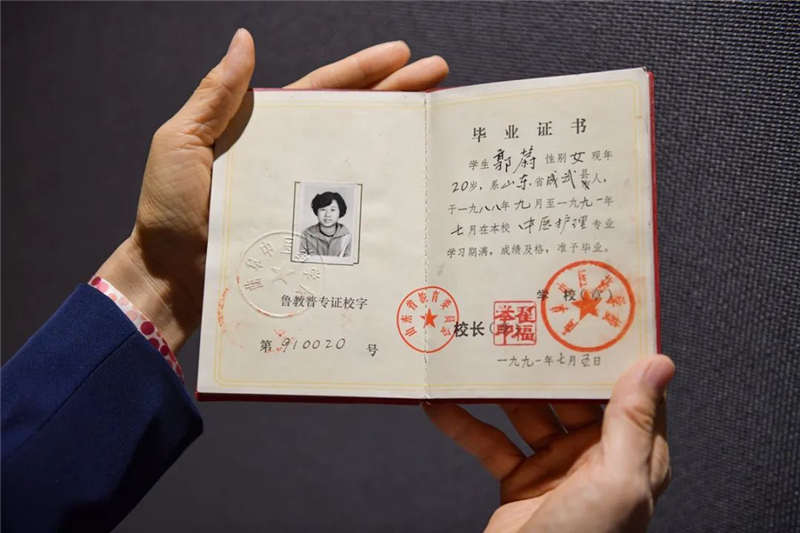 鲁教普专证校字
第 910020 号
毕业证书
学生 郭蔚 性别 女 现年
20岁，系山东省成武县人，
于一九八八年九月至一九九一年
七月在本校 中医护理 专业
学习期满，成绩及格，准予毕业。
学校（章）
校长
山东省教育委员会
一九九一年七月五日